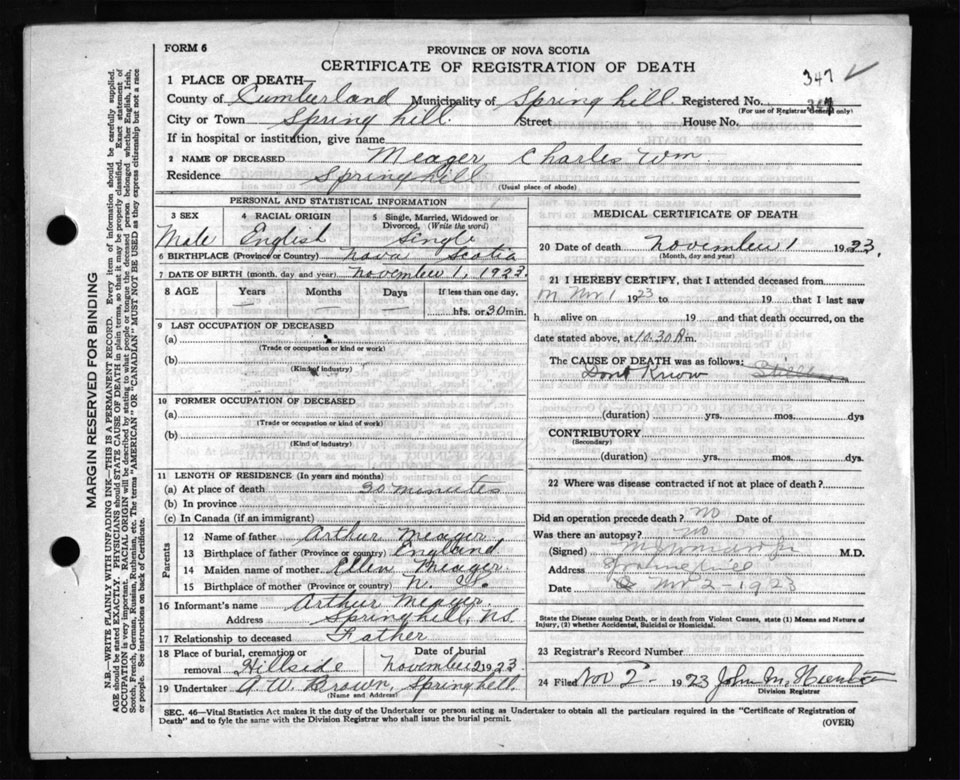 FORM 6
PROVINCE OF NOVA SCOTIA
CERTIFICATE OF REGISTRATION OF DEATH
347 ✓
1 PLACE OF DEATH—
County of Cumberland Municipality of Spring hill Registered No. 347
(For use of Registrar General only)
City or Town Spring hill. Street House No.
If in hospital or institution, give name
2 NAME OF DECEASED Meager, Charles Wm.
Residence Springhill
(Usual place of abode)
PERSONAL AND STATISTICAL INFORMATION
3 SEX 4 RACIAL ORIGIN 5 Single, Married, Widowed or Divorced. (Write the word)
Male English Single
6 BIRTHPLACE (Province or Country) Nova Scotia
7 DATE OF BIRTH (month, day and year) November 1, 1923
8 AGE Years Months Days If less than one day,
— — — hrs. or 30 min.
9 LAST OCCUPATION OF DECEASED
(a)
(Trade or occupation or kind or work)
(b)
(Kind of industry)
10 FORMER OCCUPATION OF DECEASED
(a)
(Trade or occupation or kind of work)
(b)
(Kind of industry)
11 LENGTH OF RESIDENCE (In years and months)
(a) At place of death 30 minutes
(b) In province
(c) In Canada (if an immigrant)
Parents
12 Name of father Arthur Meager
13 Birthplace of father (Province or country) England
14 Maiden name of mother Ellen Meager.
15 Birthplace of mother (Province or country) N. S.
16 Informant's name Arthur Meager.
Address Springhill, N.S.
17 Relationship to deceased Father
18 Place of burial, cremation or removal Hillside Date of burial November 2 1923
19 Undertaker A. W. Brown, Springhill.
(Name and Address)
MEDICAL CERTIFICATE OF DEATH
20 Date of death November 1 1923.
(Month, day and year)
21 I HEREBY CERTIFY, that I attended deceased from
Nov 1 1923 to 19 that I last saw
h alive on 19 and that death occurred, on the
date stated above, at 10.30 A m.
The CAUSE OF DEATH was as follows:
Dont Know
(duration) yrs. mos. dys
CONTRIBUTORY
(Secondary)
(duration) yrs. mos. dys.
22 Where was disease contracted if not at place of death?
Did an operation precede death? No Date of
Was there an autopsy? No
(Signed) M.D.
Address Springhill
Date Nov 2 - 1923
State the Disease causing Death, or in death from Violent Causes, state (1) Means and Nature of Injury, (2) whether Accidental, Suicidal or Homicidal.
23 Registrar's Record Number
24 Filed Nov 2 - 1923 John M.
Division Registrar
SEC. 46—Vital Statistics Act makes it the duty of the Undertaker or person acting as Undertaker to obtain all the particulars required in the "Certificate of Registration of
Death" and to fyle the same with the Division Registrar who shall issue the burial permit. (OVER)
MARGIN RESERVED FOR BINDING
N.B.—WRITE PLAINLY WITH UNFADING INK—THIS IS A PERMANENT RECORD. Every item of information should be carefully supplied.
AGE should be stated EXACTLY. PHYSICIANS should STATE CAUSE OF DEATH in plain terms, so that it may be properly classified. Exact statement of
OCCUPATION is very important. RACIAL ORIGIN will be described by stating to what people or tongue the deceased person belonged whether English, Irish,
Scotch, French, German, Russian, Ruthenian, etc. The terms "AMERICAN" OR "CANADIAN" MUST NOT BE USED as they express citizenship but not a race
or people. See instructions on back of Certificate.